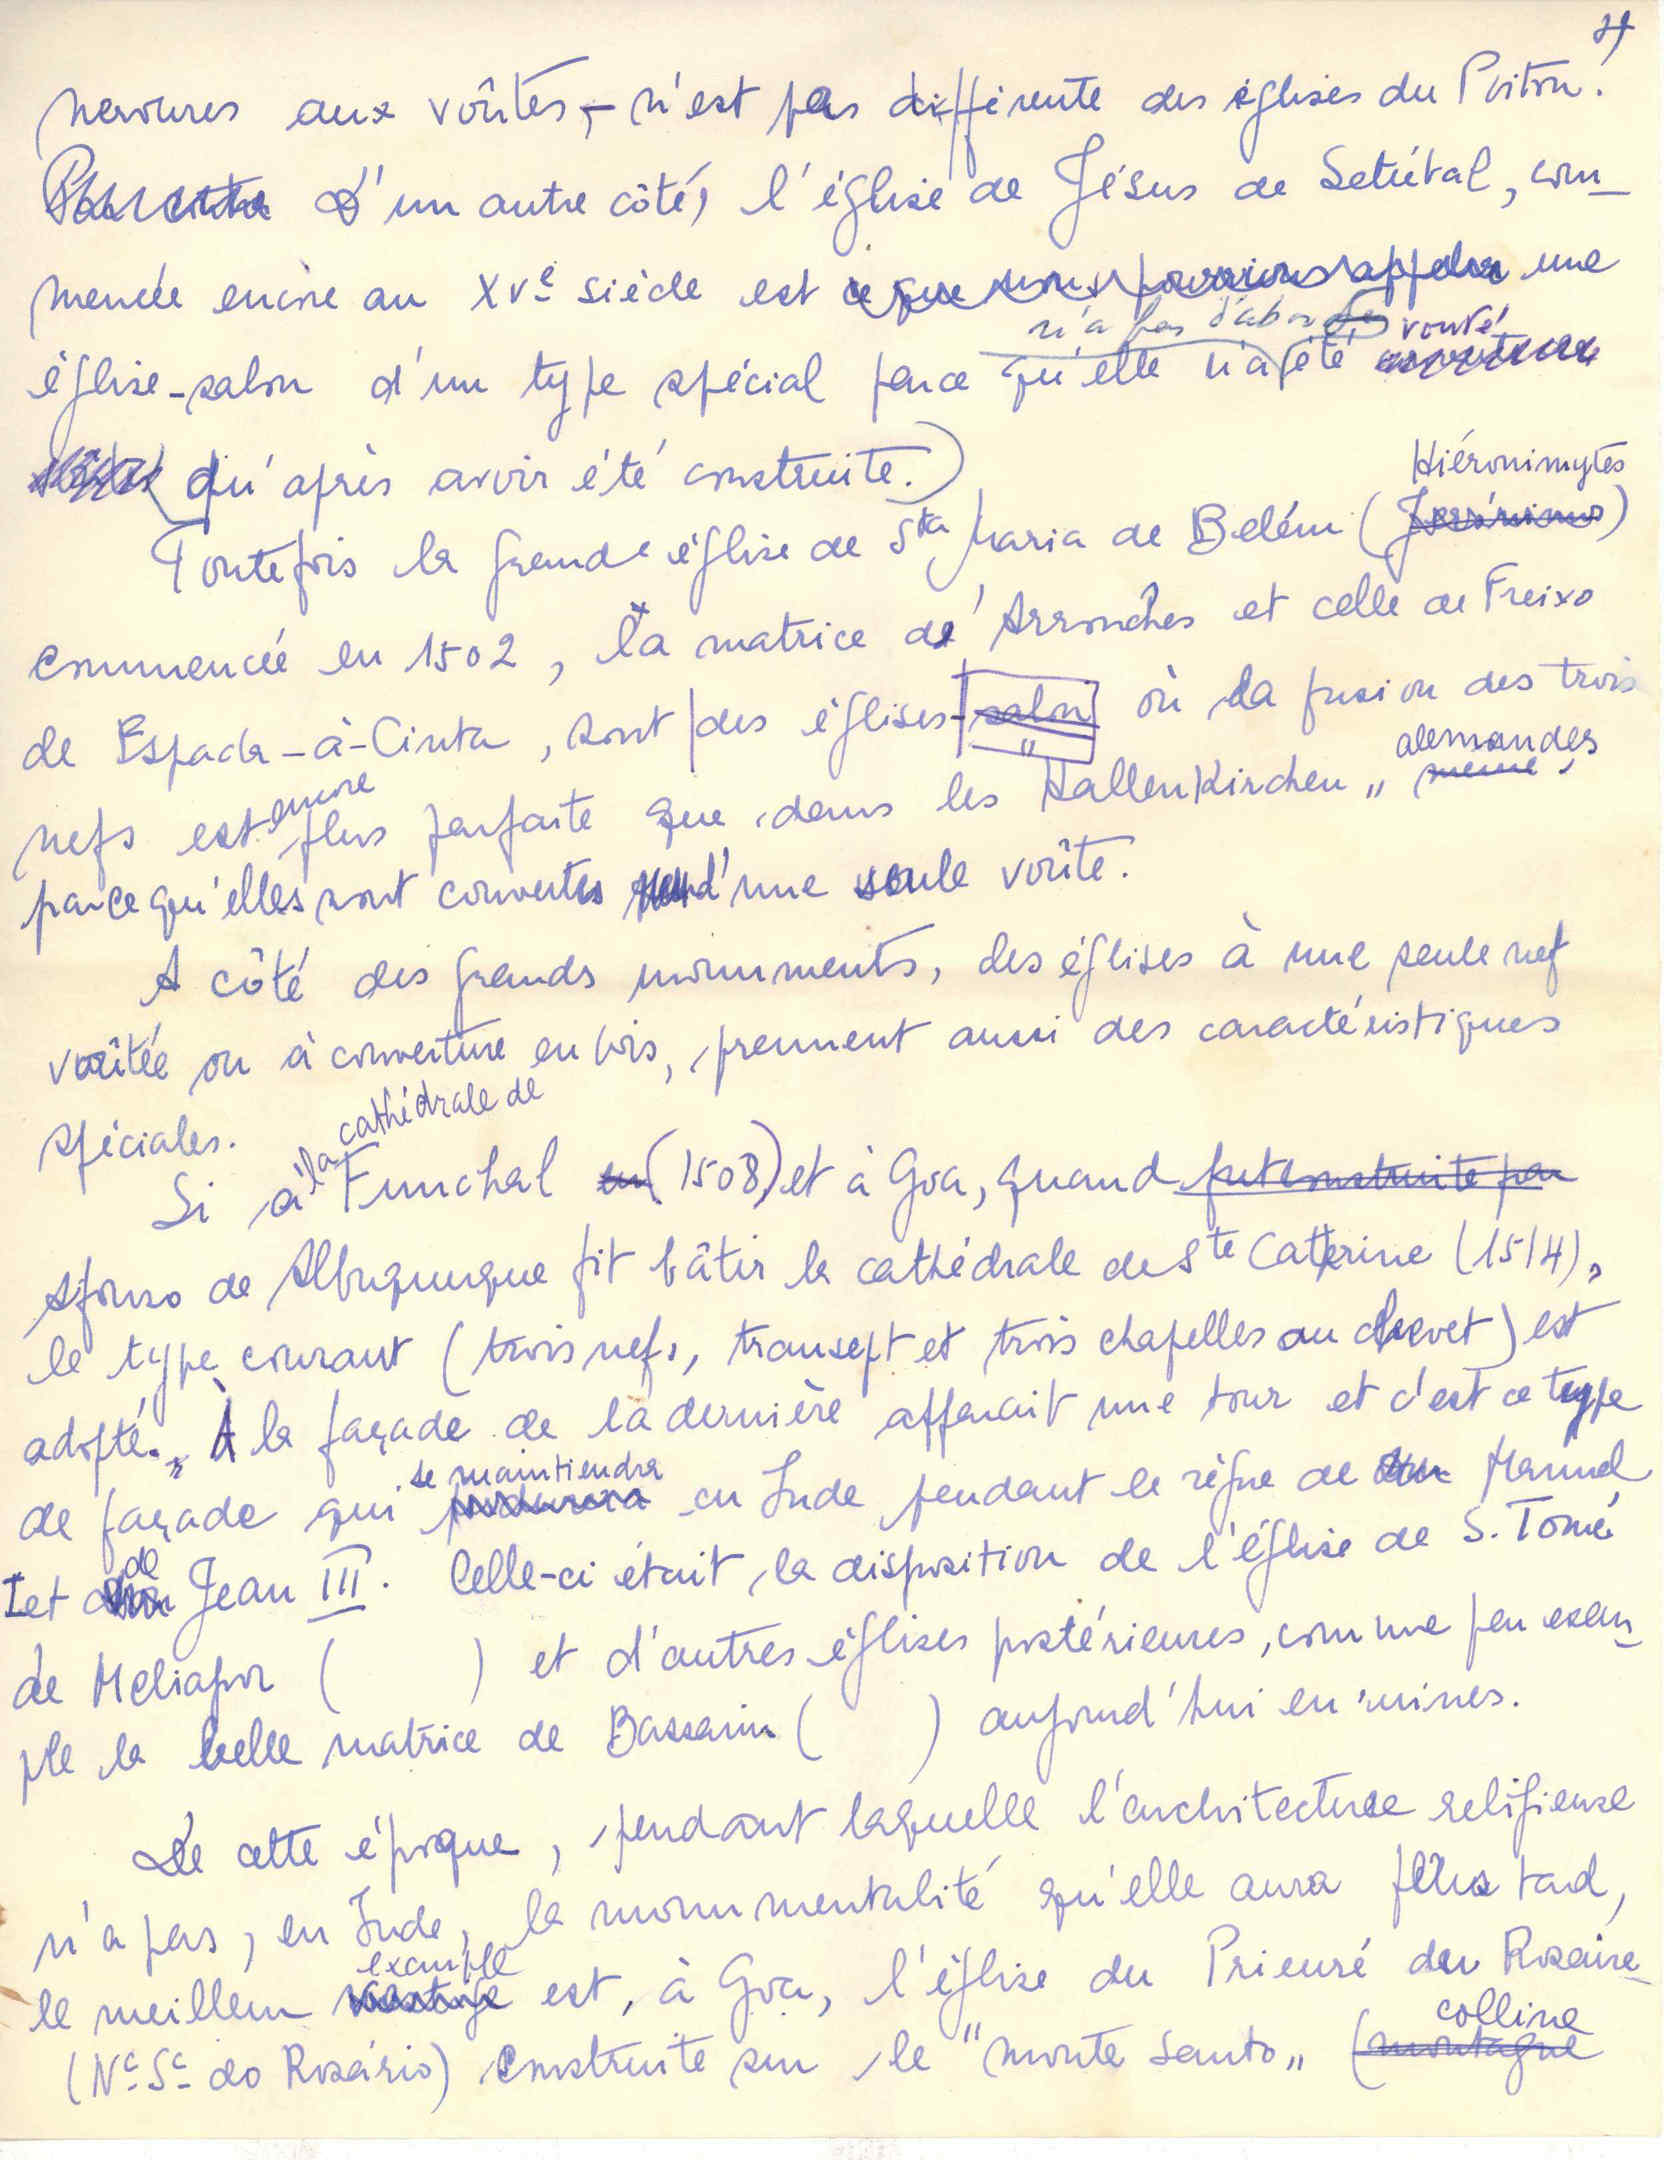 nervures aux voûtes, – n'est pas différente des églises du Poitou.
D'un autre côté, l'église de Jésus de Setúbal, com-
mencée encore au XVe siècle est ce que nous pourrions appeler une
n'a pas d'abord voûté
église-salon d'un type spécial parce qu'elle n'a été
qu'après avoir été construite.)
Hiéronimytes
Toutefois la grande église de Sta Maria de Belém (Jerónimos)
commencée en 1502, la matrice de Arronches et celle de Freixo
de Espada-à-Cinta, sont des églises-salon où la fusion des trois
encore alemandes
nefs est plus parfaite que dans les "Hallenkirchen" même,
parce qu'elles sont couvertes d'une seule voûte.
A côté des grands monuments, des églises à une seule nef
voûtée ou à couverture en bois, prennent aussi des caractéristiques
spéciales.
la cathédrale de
Si à Funchal en (1508) et à Goa, quand fut construite par
Afonso de Albuquerque fit bâtir la cathédrale de Ste Caterine (1514),
le type courant (trois nefs, transept et trois chapelles au chevet) est
adopté. À la façade de la dernière apparait une tour et c'est ce type
se maintiendra
de façade qui en Inde pendant le règne de Manuel
de
I et Jean III. Celle-ci était la disposition de l'église de S. Tomé
de Meliapor ( ) et d'autres églises postérieures, comme par exem-
ple la belle matrice de Bassaim ( ) aujourd'hui en ruines.
De cette époque, pendant laquelle l'architecture religieuse
n'a pas, en Inde, la monumentalité qu'elle aura plus tard,
exemple
le meilleur est, à Goa, l'église du Prieuré du Rosaire
colline
(Nª Sª do Rosário) construite sur le "monte santo" (montagne